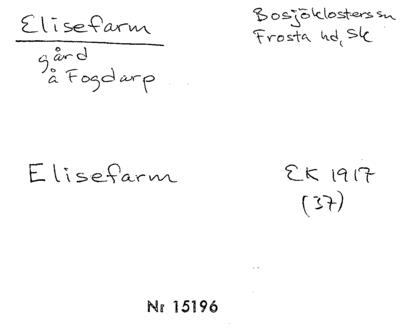 Elisefarm
gård
å Fogdarp
Bosjöklosters sn
Frosta hd, Sk
Elisefarm
EK 1917
(37)
Nr 15196